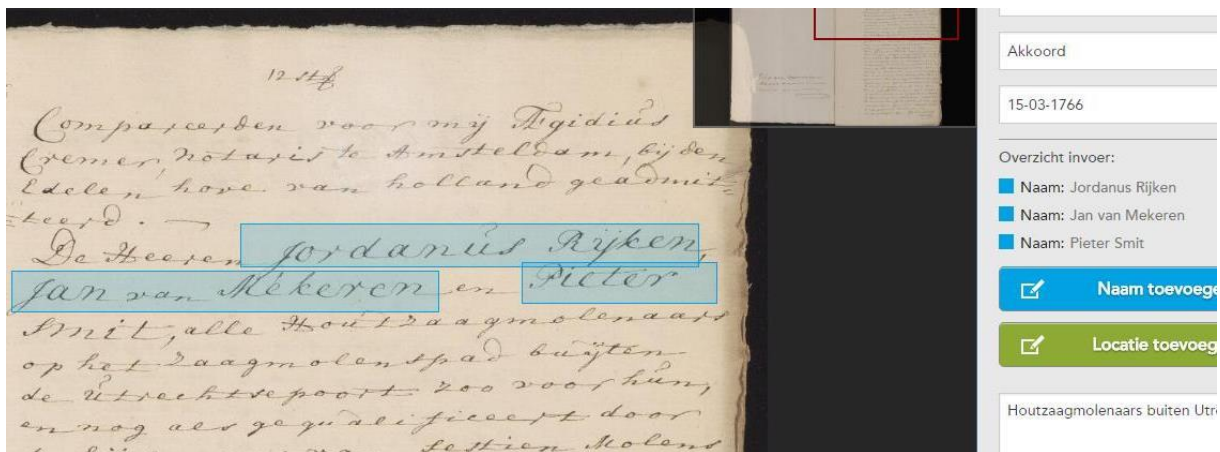 12 st
Compareerden voor mij Ægidius
Cremer, Notaris te Amsteldam, bij den
Edelen hove van holland geadmit=
=teerd. —
De Heeren Jordanus Rijken,
Jan van Mekeren en Pieter
Smit, alle Houtzaagmolenaars
op het Zaagmolenspad buijten
de Utrechtsepoort zoo voor hun,
en nog als gequalificeert door
Sestien Molens
Akkoord
15-03-1766
Overzicht invoer:
Naam: Jordanus Rijken
Naam: Jan van Mekeren
Naam: Pieter Smit
Naam toevoege
Locatie toevoeg
Houtzaagmolenaars buiten Utr